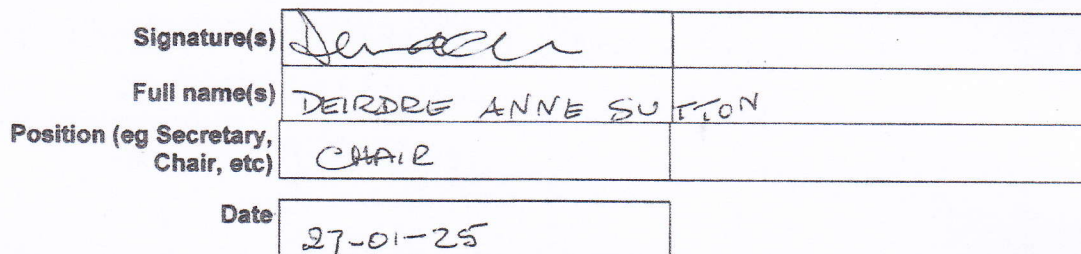 Signature(s)
Full name(s) DEIRDRE ANNE SUTTON
Position (eg Secretary,
Chair, etc) CHAIR
Date 27-01-25